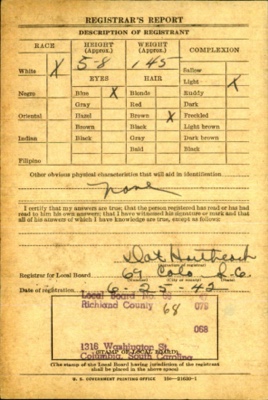 REGISTRAR'S REPORT
DESCRIPTION OF REGISTRANT
RACE
HEIGHT (Approx.)
WEIGHT (Approx.)
COMPLEXION
White X
5-8
145
Sallow
EYES
HAIR
Light X
Negro
Blue X
Blonde
Ruddy
Gray
Red
Dark
Oriental
Hazel
Brown X
Freckled
Brown
Black
Light brown
Indian
Black
Gray
Dark brown
Bald
Black
Filipino
Other obvious physical characteristics that will aid in identification
None
I certify that my answers are true; that the person registered has read or has had
read to him his own answers; that I have witnessed his signature or mark and that
all of his answers of which I have knowledge are true, except as follows:
(Signature of registrar)
Registrar for Local Board 69 Cola S.C.
(Number) (City or county) (State)
Date of registration 6-25-42
Local Board No. 69
Richland County 079
68
068
1316 Washington St.
Columbia, South Carolina
(STAMP OF LOCAL BOARD)
(The stamp of the Local Board having jurisdiction of the registrant
shall be placed in the above space)
U. S. GOVERNMENT PRINTING OFFICE 16—21630-1